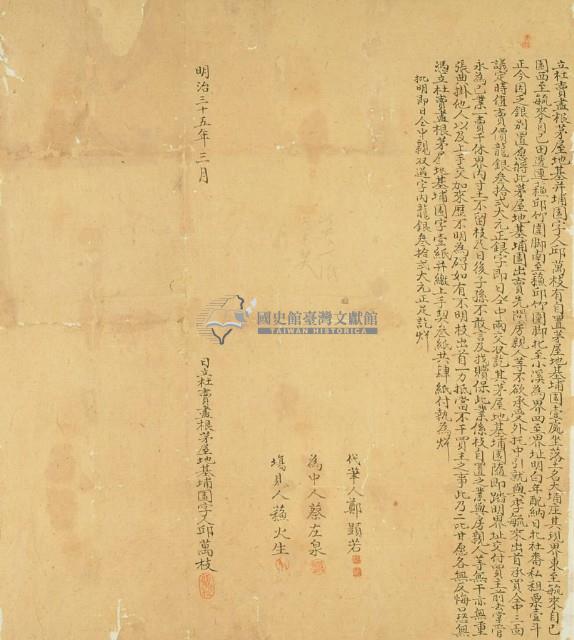 立杜賣盡根茅屋地基并埔園字人邱萬枝有自置茅屋地基埔園壹處坐落土名大埔庄其現界東至毓來自己
園西至毓來自己田邊連籬邱竹圍脚南至籬邱竹圍脚北至小溪為界四至界址明白年配納日北社番私租粟壹斗
正今因乏銀別置愿將此茅屋地基埔園出賣先問房親人等不欲承受外托中引就與毓來出首承買仝中三面
議定時值賣價龍銀叁拾弍大元正銀字即日仝中兩交收訖其茅屋地基埔園隨即踏明界址交付買主前去掌管
永為己業一賣千休界內寸土不留枝及日後子孫不敢言及找贖保此業係枝自置之業與房親人等無干亦無重
張典掛他人以及上手交加來歷不明為碍如有不明枝出首一力抵當不干買主之事此乃二比甘愿各無反悔口恐無
憑立杜賣盡根茅屋地基埔園字壹紙并繳上手契叁紙共肆紙付執為炤
批明即日仝中親收過字內龍銀叁拾弍大元正足訖炤
代筆人鄭顯若
為中人蔡左泉
塲見人蘓火生
明治三十五年三月
日立杜賣盡根茅屋地基埔園字人邱萬枝
國史館臺灣文獻館
TAIWAN HISTORICA